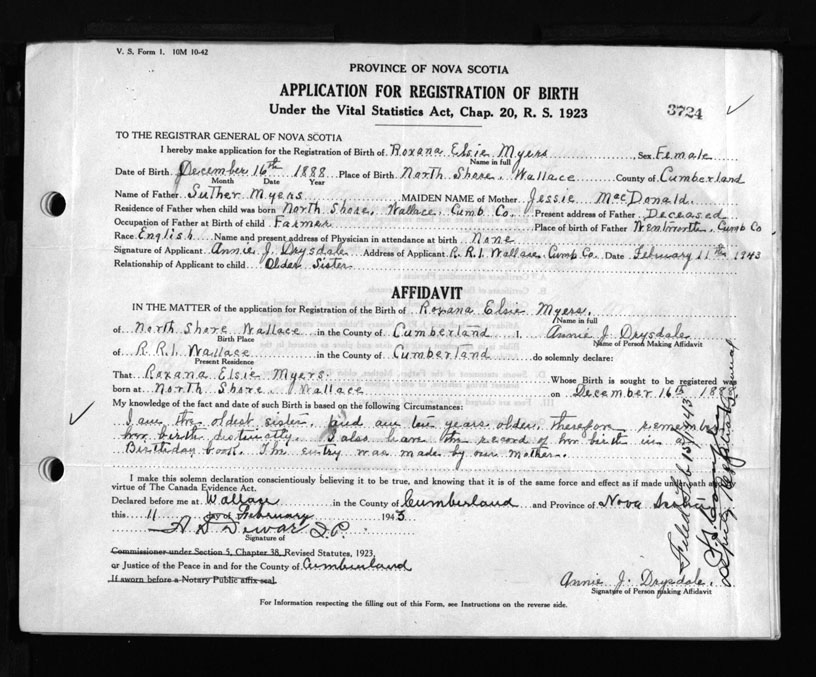 V. S. Form 1. 10M 10-42
PROVINCE OF NOVA SCOTIA
APPLICATION FOR REGISTRATION OF BIRTH
Under the Vital Statistics Act, Chap. 20, R. S. 1923
3724
TO THE REGISTRAR GENERAL OF NOVA SCOTIA
I hereby make application for the Registration of Birth of Roxana Elsie Myers, Sex Female
Name in full
Date of Birth December 16th 1888 Place of Birth North Shore, Wallace County of Cumberland
Month Date Year
Name of Father Suther Myers MAIDEN NAME of Mother Jessie MacDonald.
Residence of Father when child was born North Shore, Wallace, Cumb. Co. Present address of Father Deceased
Occupation of Father at Birth of child Farmer Place of birth of Father Wentworth, Cumb Co
Race English Name and present address of Physician in attendance at birth None
Signature of Applicant Annie J. Drysdale Address of Applicant R.R.1. Wallace Cumb. Co. Date February 11th 1943
Relationship of Applicant to child Older Sister
AFFIDAVIT
IN THE MATTER of the application for Registration of the Birth of Roxana Elsie Myers.
Name in full
of North Shore Wallace in the County of Cumberland I, Annie J. Drysdale
Birth Place Name of Person Making Affidavit
of R.R.1. Wallace in the County of Cumberland do solemnly declare:
Present Residence
That Roxana Elsie Myers. Whose Birth is sought to be registered was
born at North Shore Wallace on December 16th 1888
My knowledge of the fact and date of such Birth is based on the following Circumstances:
I am the oldest sister, and am ten years older, therefore remember
her birth distinctly. I also have the record of her birth in a
Birthday book. The entry was made by our mother.
I make this solemn declaration conscientiously believing it to be true, and knowing that it is of the same force and effect as if made under oath
virtue of The Canada Evidence Act.
Declared before me at Wallace in the County of Cumberland and Province of Nova Scotia
this 11 day of February 1943
A D Dewar J.P.
Signature of
Commissioner under Section 5, Chapter 38, Revised Statutes, 1923,
or Justice of the Peace in and for the County of Cumberland
If sworn before a Notary Public affix seal
Annie J. Drysdale.
Signature of Person making Affidavit
For Information respecting the filling out of this Form, see Instructions on the reverse side.
Filed Feb 15/43
Deputy Registrar General